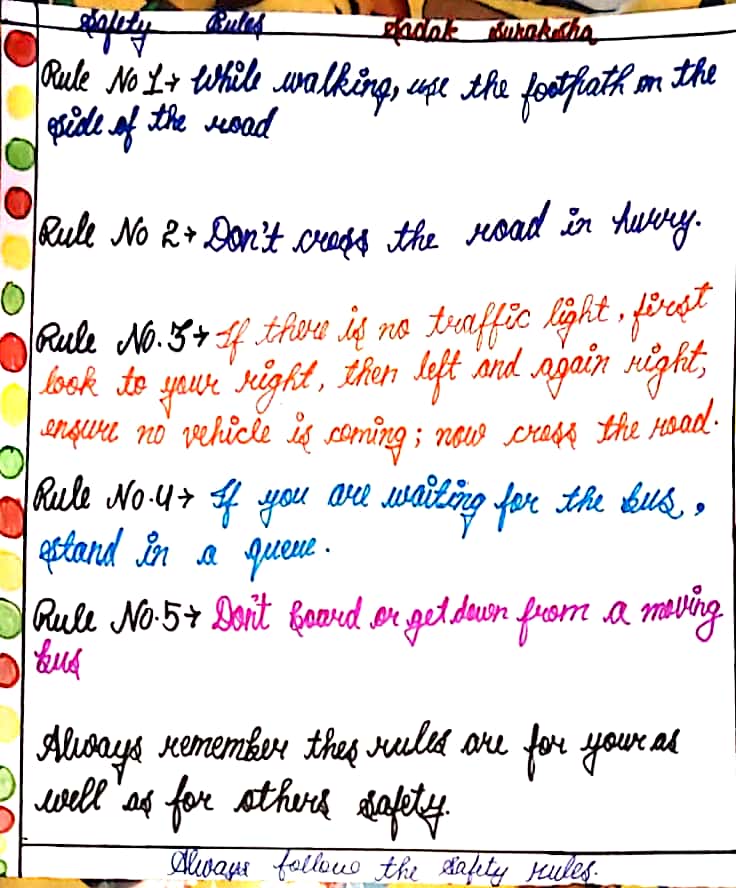 Safety Rules Sadak Suraksha
Rule No 1→ While walking, use the footpath on the
side of the road
Rule No 2→ Don't cross the road in hurry.
Rule No.3→ If there is no traffic light, first
look to your right, then left and again right,
ensure no vehicle is coming; now cross the road.
Rule No.4→ If you are waiting for the bus,
stand in a queue.
Rule No.5→ Don't board or get down from a moving
bus
Always remember thes rules are for your as
well as for others safety.
Always follow the safety rules.